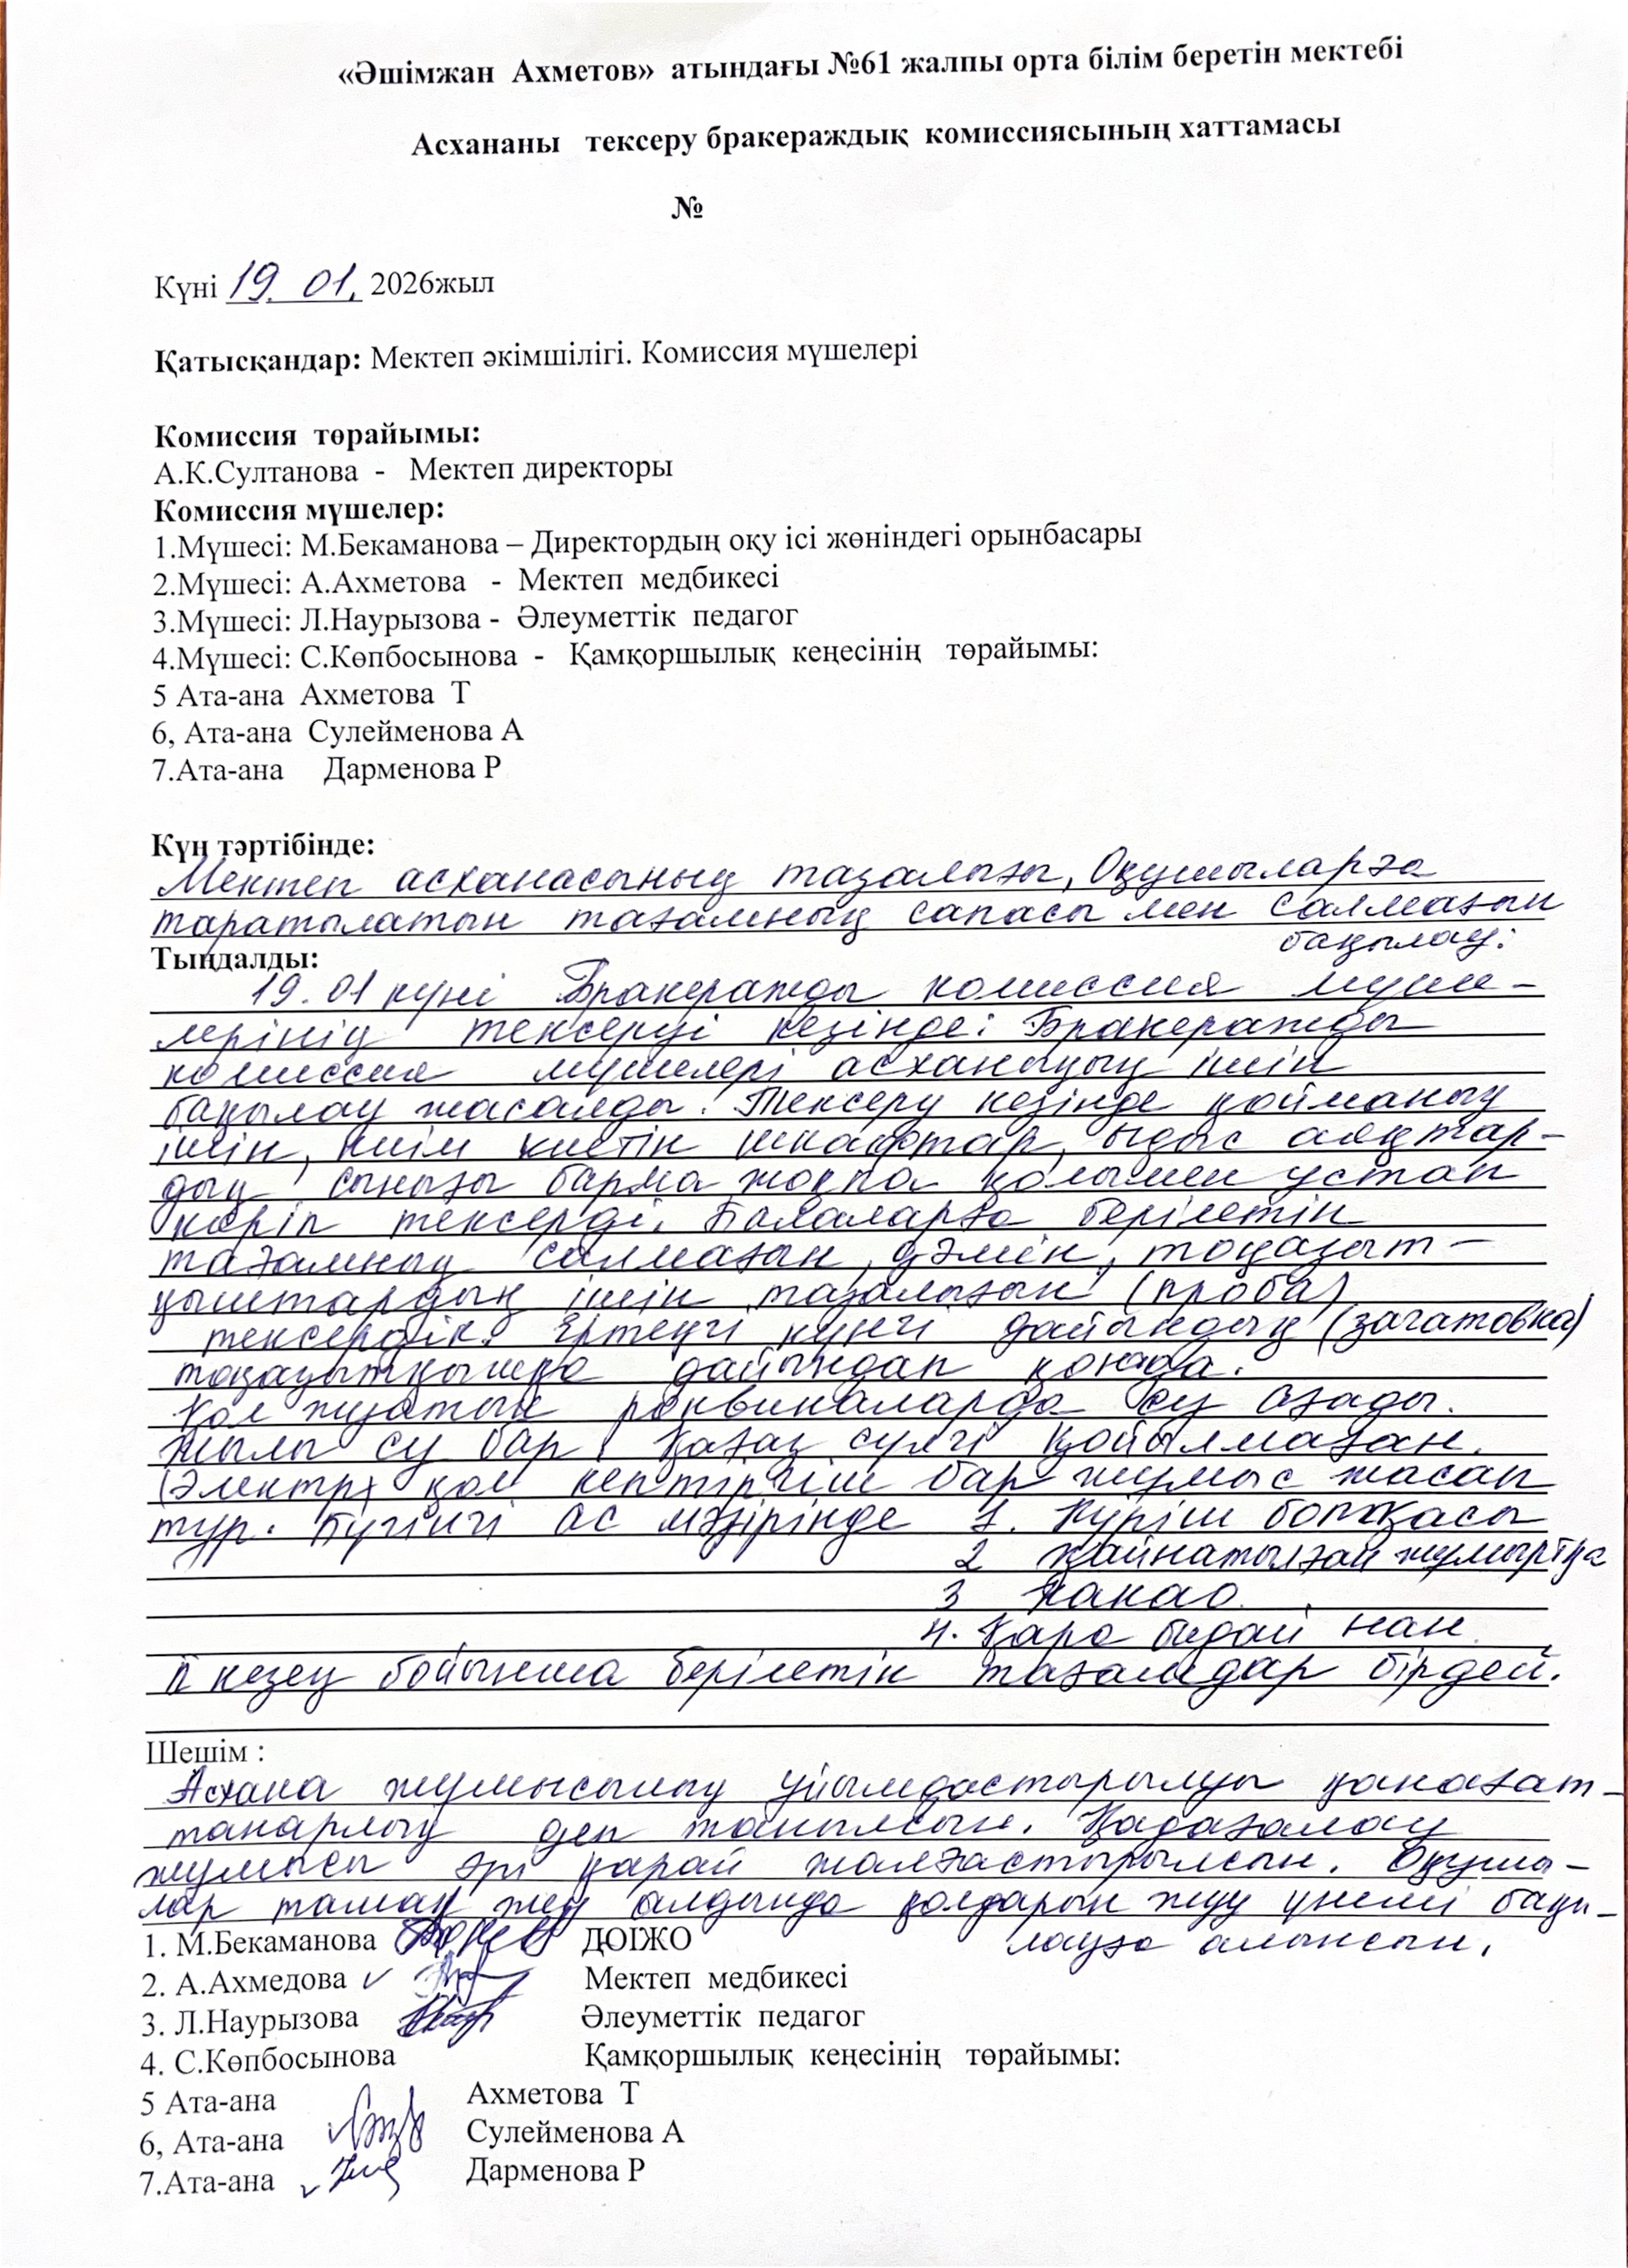 «Әшімжан Ахметов» атындағы №61 жалпы орта білім беретін мектебі
Асхананы тексеру бракераждық комиссиясының хаттамасы
№
Күні 19. 01. 2026жыл
Қатысқандар: Мектеп әкімшілігі. Комиссия мүшелері
Комиссия төрайымы:
А.К.Султанова - Мектеп директоры
Комиссия мүшелер:
1.Мүшесі: М.Бекаманова – Директордың оқу ісі жөніндегі орынбасары
2.Мүшесі: А.Ахметова - Мектеп медбикесі
3.Мүшесі: Л.Наурызова - Әлеуметтік педагог
4.Мүшесі: С.Көпбосынова - Қамқоршылық кеңесінің төрайымы:
5 Ата-ана Ахметова Т
6, Ата-ана Сулейменова А
7.Ата-ана Дарменова Р
Күн тәртібінде:
Мектеп асханасының тазалығы, Оқушыларға
таратылатын тағамның сапасы мен салмағын
бақылау:
Тыңдалды:
19.01 күні Бракеражды комиссия мүше-
лерінің тексеруі кезінде: Бракеражды
комиссия мүшелері асхананың ішін
бақылау жасалды. Тексеру кезінде қойманың
ішін, киім киетін шкафтар, ыдыс аяқтар-
дың сынығы барма жоқпа қолымен ұстап
көріп тексерді. Балаларға берілетін
тағамның салмағын, дәмін, тоңазыт-
қыштардың ішін тазалығын (проба)
тексердік. Ертеңгі күнгі дайындық (загатовка)
тоңазытқышқа дайындап қояда.
Қол жуатын раквиналарда су ағады.
Жылы су бар. Қағаз сүлгі қойылмаған.
(Электр) қол кептіргіш бар жұмыс жасап
тұр. Бүгінгі ас мәзірінде 1. Күріш ботқасы
2 қайнатылған жұмыртқа
3 Какао
4. Қара бидай нан
II кезең бойынша берілетін тағамдар бірдей.
Шешім :
Асхана жұмысының ұйымдастырылуы қанағат-
танарлық деп танылсын. Қадағалау
жұмысы әрі қарай жалғастырылсын. Оқушы-
лар тамақ жеу алдында қолдарын жуу үнемі бақы-
лауға алынсын.
1. М.Бекаманова ДОІЖО
2. А.Ахмедова Мектеп медбикесі
3. Л.Наурызова Әлеуметтік педагог
4. С.Көпбосынова Қамқоршылық кеңесінің төрайымы:
5 Ата-ана Ахметова Т
6, Ата-ана Сулейменова А
7.Ата-ана Дарменова Р